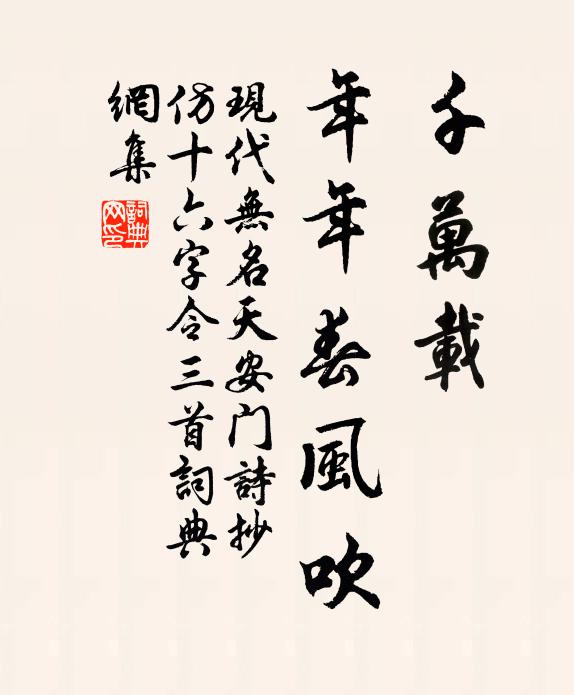 千萬載
年年春風吹
現代無名天安门詩抄
仿十六字令三首詞典
網集
詞典网印